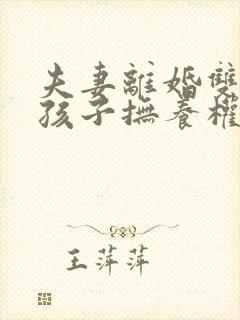 夫妻離婚雙
孩子撫養權
王萍萍